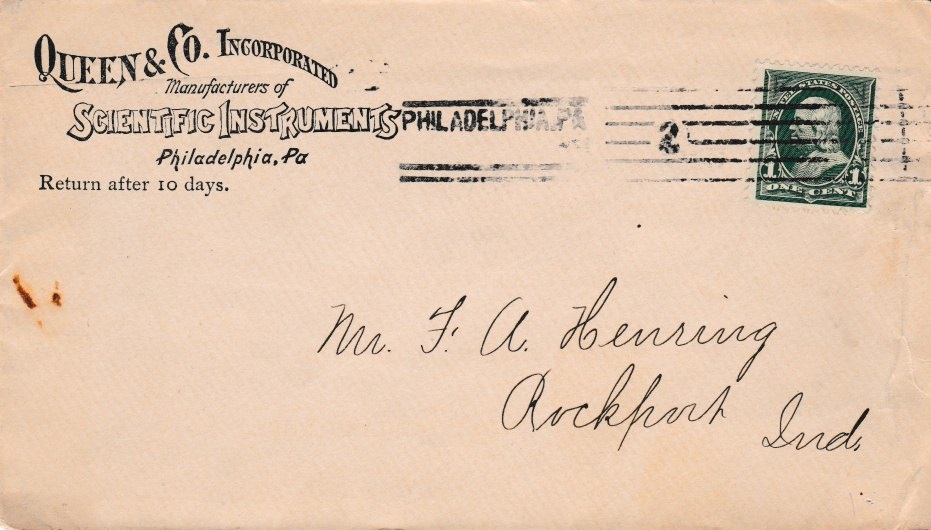 QUEEN & CO. INCORPORATED
Manufacturers of
SCIENTIFIC INSTRUMENTS
Philadelphia, Pa
Return after 10 days.
PHILADELPHIA, PA
2
UNITED STATES POSTAGE
1 1
ONE CENT
Mr. F. A. Henring
Rockport Ind.